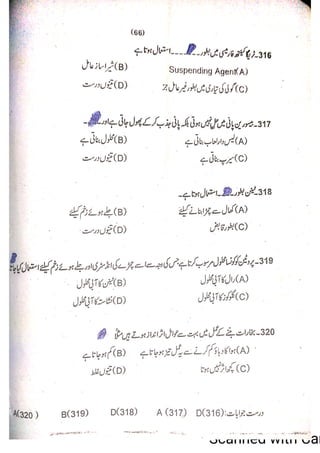 (66)
316- ٹریگا کینتھ فارمیسی میں بطور ۔۔۔۔ استعمال ہوتا ہے
(A) Suspending Agent (B) شیرا ساز عامل
(C) گولی کی تیاری میں بطور غیر عامل جز (D) تینوں درست
317- پانی میں حل نہیں ہوتی بلکہ پانی جذب کر کے پھول جاتی ہے اور
(A) لیس دار لعاب بناتی ہے (B) محلول بناتی ہے
(C) سیرپ بناتی ہے (D) تینوں درست
318- ٹینن بطور استعمال ہوتا ہے۔
(A) کھال سے چمڑا بنانے کیلئے (B) جلے ہوئے زخم کیلئے
(C) بطور قابض (D) تینوں درست
319- پروٹین کو کونسا محلول مرسوب کرتا ہے جس کی وجہ سے اسے چمڑے کی انڈسٹری اور جلے ہوئے زخم کیلئے استعمال کیا جاتا
(A) رال کا آبی محلول (B) ٹینن کا آبی محلول
(C) گلوکوز کا آبی محلول (D) نشاستہ کا آبی محلول
320- بخارات بننے کے عمل میں بہت سے عوامل اثر انداز ہوتے ہیں مثلاً
(A) ہوا کا دباؤ کم کرنے سے یہ عمل تیز ہو جاتا ہے (B) کم ہو جاتا ہے
(C) کچھ اثر نہیں ہوتا (D) تینوں غلط
درست جوابات: D(316) A (317) D(318) B(319) A(320 )
Scanned with Ca